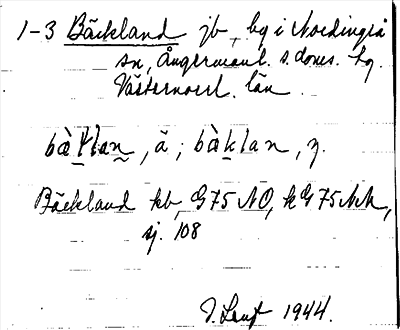 1-3 Bäckland jb, bg i Nordingrå
sn, Ångermanl. s. doms. hg.
Västernorrl. län.
bàklan, ä; bàklan, y.
Bäckland kb, G75 NO, k G75 NA,
sj. 108
1944.